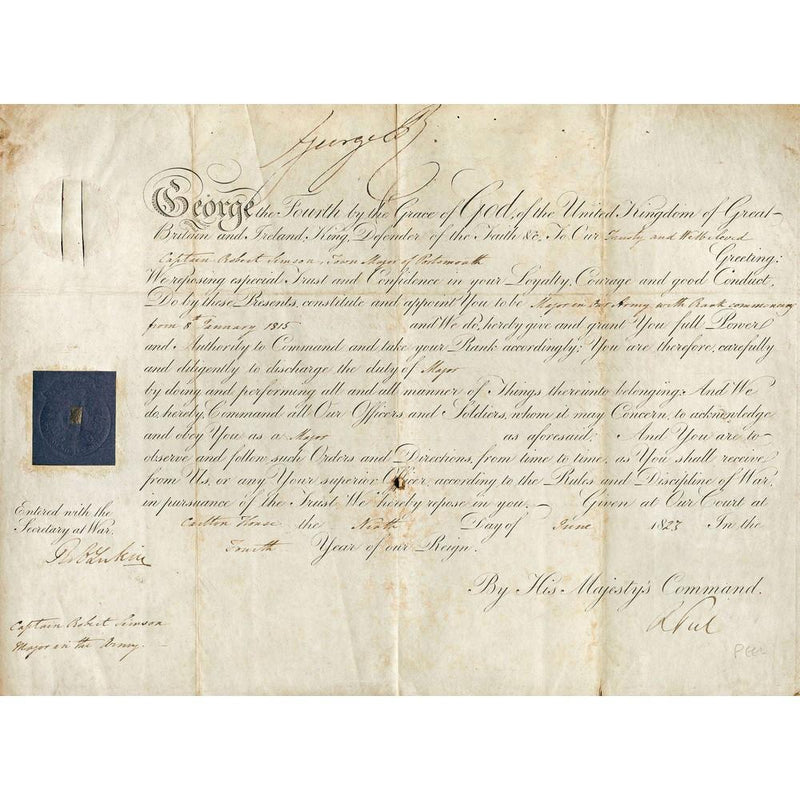 George R
George the Fourth by the Grace of God, of the United Kingdom of Great
Britain and Ireland, King, Defender of the Faith &c. To Our Trusty and Welbeloved
Captain Robert Simson, Town Major of Portsmouth Greeting:
We reposing especial Trust and Confidence in your Loyalty, Courage and good Conduct,
Do by these Presents, constitute and appoint You to be Major in Our Army with Rank commencing
from 8th January 1815 and We do, hereby give and grant You full Power
and Authority to Command and take your Rank accordingly; You are therefore, carefully
and diligently to discharge the duty of Major
by doing and performing all and all manner of Things thereunto belonging: And We
do, hereby, Command all Our Officers and Soldiers, whom it may Concern, to acknowledge
and obey You as a Major as aforesaid: And You are to
observe and follow such Orders and Directions, from time to time, as You shall receive
from Us, or any Your superior Officer, according to the Rules and Discipline of War,
in pursuance of the Trust We hereby repose in you. Given at Our Court at
Carlton House the Ninth Day of June 1823 In the
Fourth Year of our Reign.
Entered with the
Secretary at War.
By His Majesty's Command.
R Peel
PEEL
Captain Robert Simson
Major in the Army.